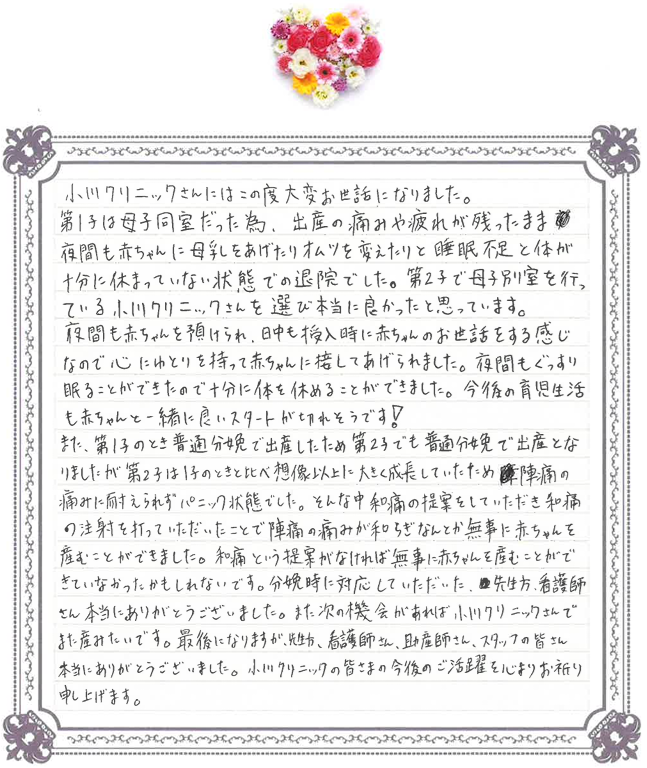 小川クリニックさんにはこの度大変お世話になりました。
第1子は母子同室だった為、出産の痛みや疲れが残ったまま
夜間も赤ちゃんに母乳をあげたりオムツを変えたりと睡眠不足と体が
十分に休まっていない状態での退院でした。第2子で母子別室を行っ
ている小川クリニックさんを選び本当に良かったと思っています。
夜間も赤ちゃんを預けられ、日中も授入時に赤ちゃんのお世話をする感じ
なので心にゆとりを持って赤ちゃんに接してあげられました。夜間もぐっすり
眠ることができたので十分に体を休めることができました。今後の育児生活
も赤ちゃんと一緒に良いスタートが切れそうです!
また、第1子のとき普通分娩で出産したため第2子でも普通分娩で出産とな
りましたが第2子は1子のときと比べ想像以上に大きく成長していたため陣痛の
痛みに耐えられずパニック状態でした。そんな中和痛の提案をしていただき和痛
の注射を打っていただいたことで陣痛の痛みが和らぎなんとか無事に赤ちゃんを
産むことができました。和痛という提案がなければ無事に赤ちゃんを産むことがで
きていなかったかもしれないです。分娩時に対応していただいた、先生方、看護師
さん本当にありがとうございました。また次の機会があれば小川クリニックさんで
また産みたいです。最後になりますが、先生方、看護師さん、助産師さん、スタッフの皆さん
本当にありがとうございました。小川クリニックの皆さまの今後のご活躍を心よりお祈り
申し上げます。